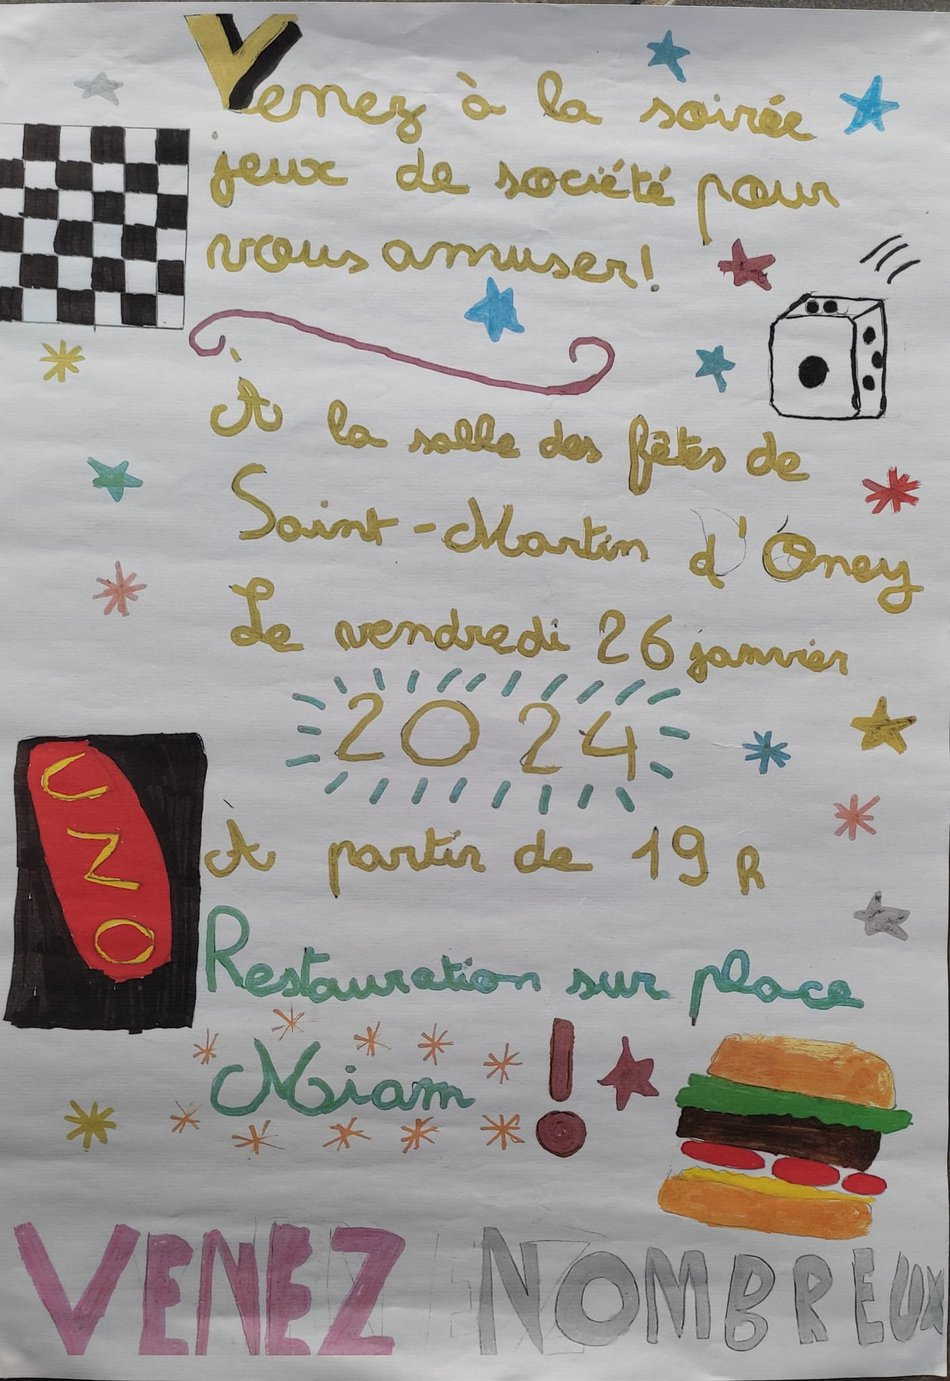 Venez à la soirée
jeux de société pour
vous amuser!
À la salle des fêtes de
Saint-Martin d'Oney
Le vendredi 26 janvier
2024
À partir de 19 h
UNO
Restauration sur place
Miam !
VENEZ NOMBREUX